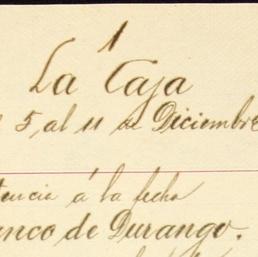 1
La Caja
5, al 11 de Diciembre
tencia á la fecha
nco de Durango.